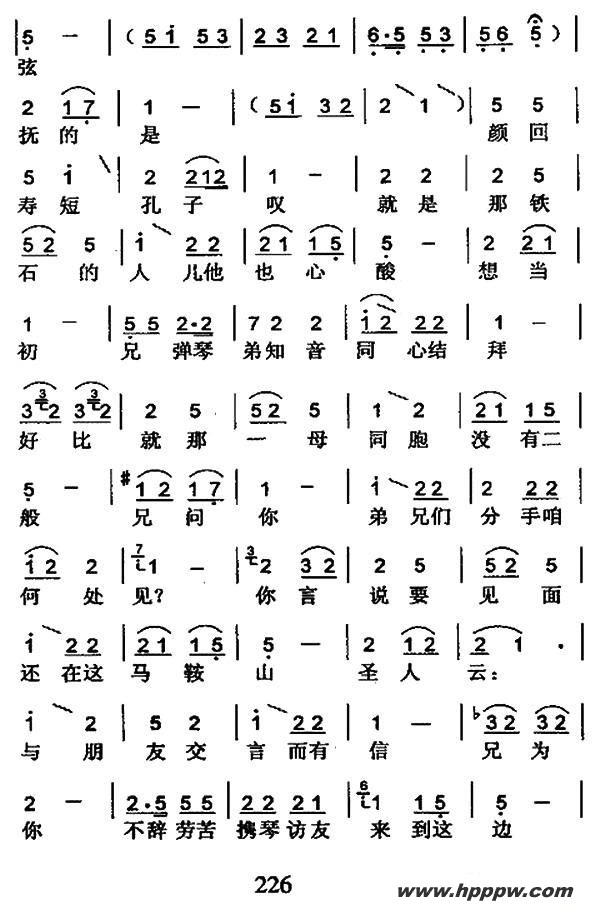 5 － | ( 5 i 5 3 | 2 3 2 1 | 6·5 5 3 | 5 6 5 ) |
弦
2 1 7 | 1 － | ( 5 i 3 2 | 2 1 ) | 5 5 |
抚的 是 颜回
5 i | 2 2 1 2 | 1 － | 2 2 | 2 5 |
寿短 孔子 叹 就是 那铁
5 2 5 | i 2 2 | 2 1 1 5 | 5 － | 2 2 1 |
石的 人儿他 也心 酸 想当
1 － | 5 5 2·2 | 7 2 2 | i 2 2 2 | 1 － |
初 兄弹琴 弟知音 同心结 拜
3 2 3 2 | 2 5 | 5 2 5 | 1 2 | 2 1 1 5 |
好比 就那 一母 同胞 没有二
5 － | #1 2 1 7 | 1 － | i 2 2 | 2 2 2 |
般 兄问 你 弟兄们 分手咱
i 2 2 | 1 － | 2 3 2 | 2 5 | 5 2 5 |
何处 见? 你言 说要 见面
i 2 2 | 2 1 1 5 | 5 － | 2 1 2 | 2 1 · |
还在这 马鞍 山 圣人 云:
i 2 | 5 2 | i 2 2 | 1 － | b3 2 3 2 |
与朋 友交 言而有 信 兄为
2 － | 2·5 5 5 | 2 2 2 1 | 1 1 5 | 5 － |
你 不辞劳苦 携琴访友 来到这 边
226
www.hpppw.com